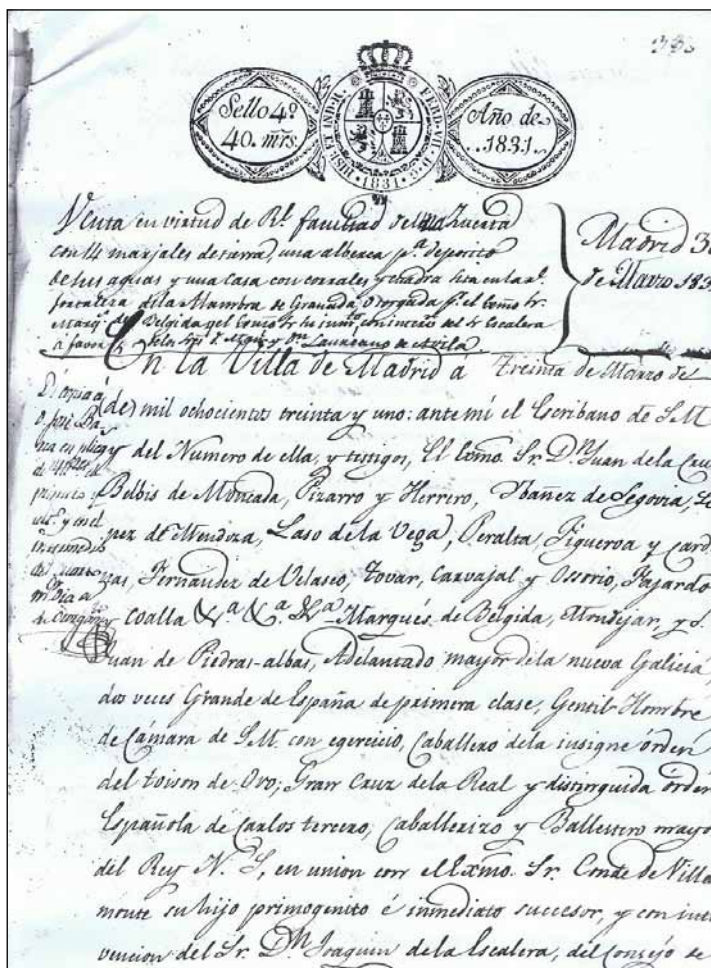 Sello 4º
40. mrs.
HISP. ET IND. R. FERD. VII. D. G. 1831
Año de
1831.
Venta en virtud de Rl. facultad de una Huerta
con 14 marjales de tierra, una alberca pa. deposito
de sus aguas y una Casa con corrales y cuadra sita en la rl.
fortaleza de la Alhambra de Granada, Otorgada pr. el Exmo Sr.
Marqs. de Belgida y el Exmo Sr. su inmto. con interon. del Sr Escalera
a favor de los Sres. D. y Dn. Laureano de Avila.
Madrid 30
de Marzo 183
En la Villa de Madrid á Treinta de Marzo de
mil ochocientos treinta y uno: ante mí el Escribano de S. M.
y del Numero de ella, y testigos, El Exmo. Sr. Dn. Juan de la Cruz
Belbis de Moncada, Pizarro y Herrero, Ibañez de Segovia, Lo
pez de Mendoza, Laso de la Vega, Peralta, Figueroa y Card
nas, Fernandez de Velasco, Tovar, Carvajal y Ossorio, Fajardo
y Coalla &.a &.a &.a Marqués de Belgida, Mondejar, y S.
Juan de Piedras-albas, Adelantado mayor de la nueva Galicia,
dos veces Grande de España de primera clase, Gentil-Hombre
de Cámara de S. M. con egercicio, Caballero de la insigne órden
del toison de Oro; Gran Cruz de la Real y distinguida órden
Española de Carlos tercero, Caballerizo y Ballestero mayo
del Rey N. S., en union con el Exmo. Sr. Conde de Villa
monte su hijo primogenito é inmediato succesor, y con inter
vencion del Sr. Dn. Joaquin de la Escalera, del Consejo de